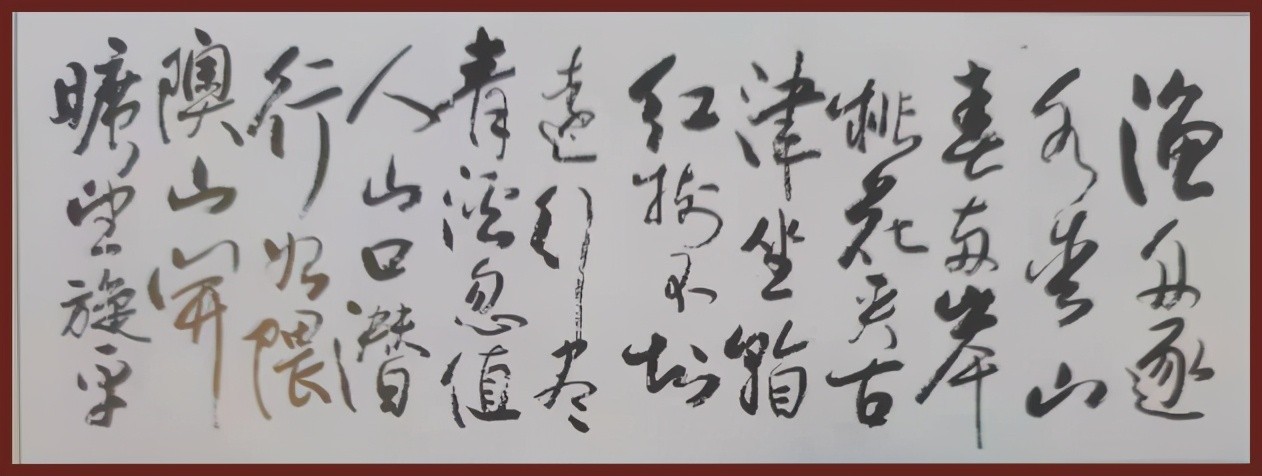 渔舟逐
水爱山
春两岸
桃花夹古
津坐看
红树不知
遠行尽
青溪忽值
人山口潜
行始隈
隩山開
曠望旋平